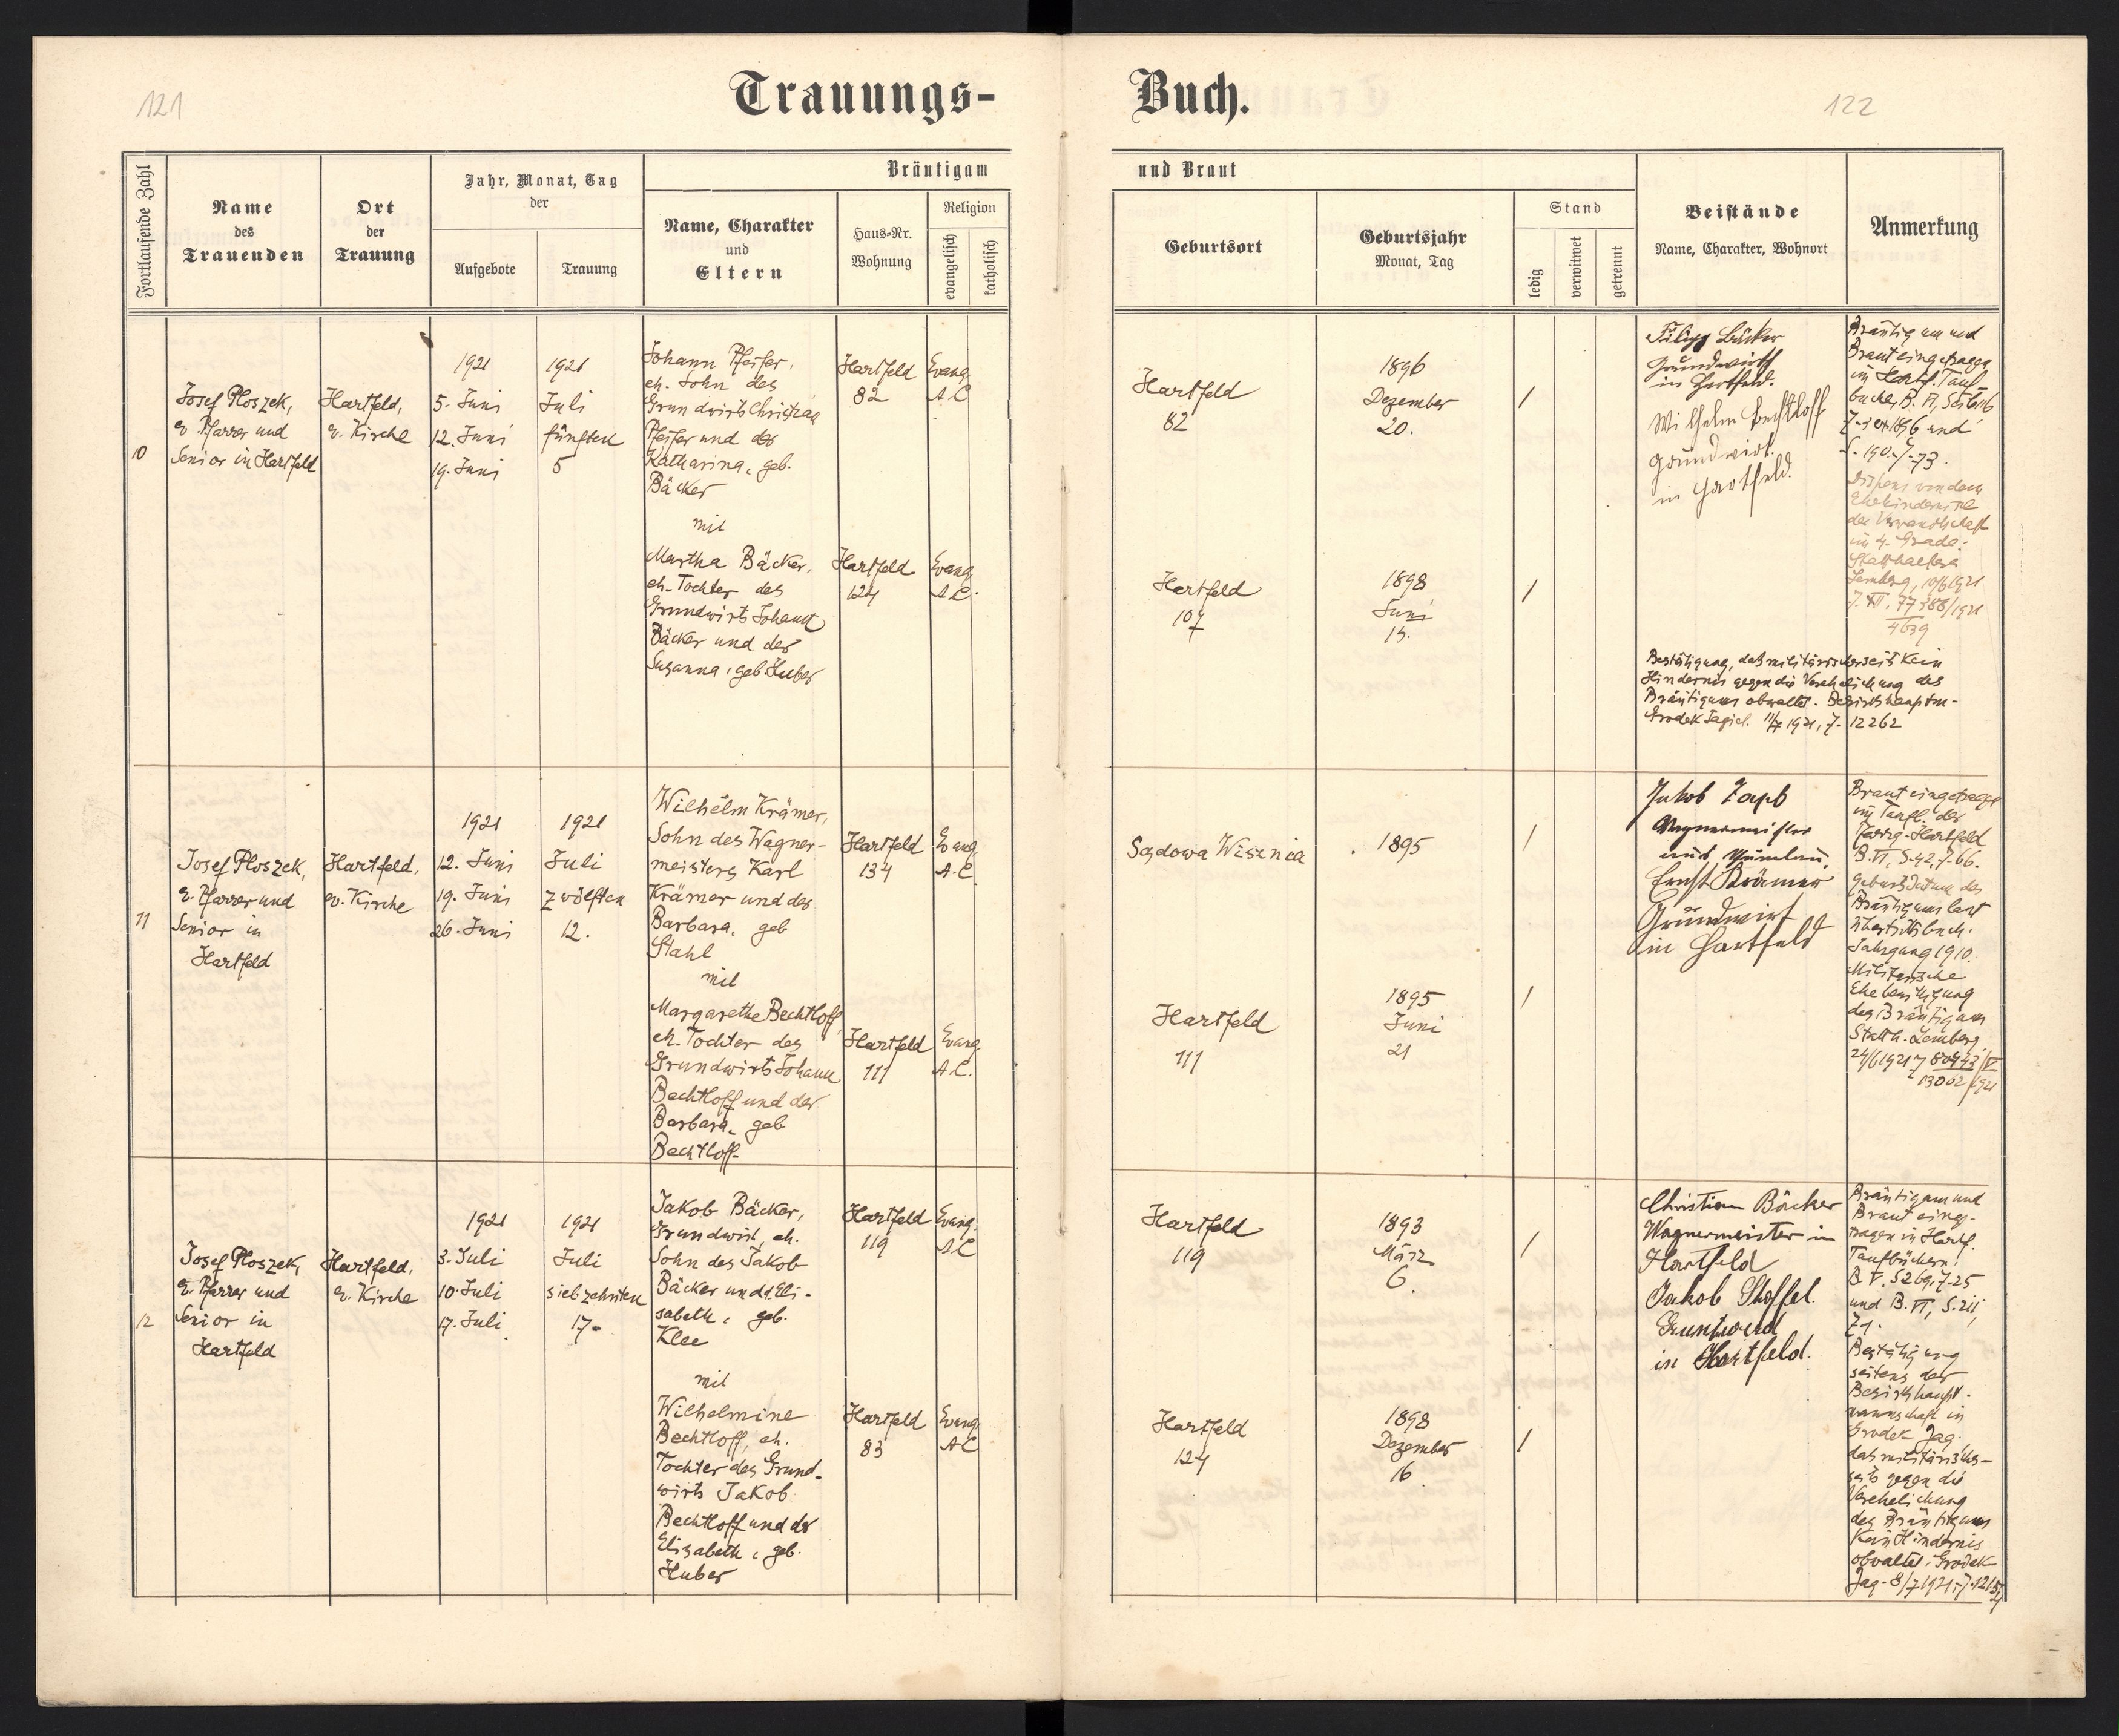 121
Trauungs-
Buch.
122
Fortlaufende Zahl
Name
des
Trauenden
Ort
der
Trauung
Jahr, Monat, Tag
der
Aufgebote
Trauung
Bräutigam
Name, Charakter
und
Eltern
Haus-Nr.
Wohnung
Religion
evangelisch
katholisch
und Braut
Geburtsort
Geburtsjahr
Monat, Tag
Stand
ledig
verwitwet
getrennt
Beistände
Name, Charakter, Wohnort
Anmerkung
10
Josef Ploszek,
ev. Pfarrer und
Senior in Hartfeld
Hartfeld,
ev. Kirche
1921
5. Juni
12. Juni
19. Juni
1921
Juli
fünften
5
Johann Pfeifer,
eh. Sohn des
Grundwirts Christian
Pfeifer und der
Katharina, geb.
Bäcker
mit
Martha Bäcker,
eh. Tochter des
Grundwirts Johann
Bäcker und der
Susanna, geb. Huber
Hartfeld
82
Evang.
A.C.
Hartfeld
124
Evang
A.C.
Hartfeld
82
1896
Dezember
20.
/
Hartfeld
107
1898
Juni
15.
/
Filipp Bäcker
Grundwirth
in Hartfeld.
Wilhelm Bechtloff
Grundwirt.
in Hartfeld.
Bräutigam und
Braut eingetragen
im Hartf. Tauf-
buche, B. VI,
und
Dispens von dem
Ehehindernisse
der Verwandtschaft
im 4. Grade:
Statthalterei
Lemberg, 10/6 1921
Z. XII. 77388/1921
4639
Bestätigung, daß militärischerseits kein
Hindernis gegen die Verehelichung des
Bräutigams obwaltet. Bezirkshauptm-
Grodek Jagiel. 1921, Z. 12262
11
Josef Ploszek,
ev. Pfarrer und
Senior in
Hartfeld
Hartfeld,
ev. Kirche
1921
12. Juni
19. Juni
26. Juni
1921
Juli
zwölften
12.
Wilhelm Krämer,
Sohn des Wagner-
meisters Karl
Krämer und der
Barbara, geb
Stahl
mit
Margarethe Bechtloff,
eh. Tochter des
Grundwirts Johann
Bechtloff und der
Barbara, geb
Bechtloff-
Hartfeld
134
Evang
A.C.
Hartfeld
111
Evang
A.C.
Sądowa Wisznia
1895
/
Hartfeld
111
1895
Juni
21
/
Jakob Zapb
Wagnermeister
und
Ernst Krämer
Grundwirt
in Hartfeld
Braut eingetragen
im Taufb. der
Pfarrg. Hartfeld
B. VI, S. 42, Z. 66.
Geburtsdatum des
Bräutigams laut
Übertrittsbuch.
Jahrgang 1910.
Militärische
Ehebewilligung
des Bräutigams
Statth. Lemberg
24/6 1921 Z 80443/V
13002/1921
12
Josef Ploszek,
ev. Pfarrer und
Senior in
Hartfeld
Hartfeld,
ev. Kirche
1921
3. Juli
10. Juli
17. Juli
1921
Juli
siebzehnten
17-
Jakob Bäcker,
Grundwirt, eh.
Sohn des Jakob
Bäcker und d. Eli-
sabeth, geb.
Klee
mit
Wilhelmine
Bechtloff, eh.
Tochter des Grund-
wirts Jakob
Bechtloff und der
Elisabeth, geb.
Huber
Hartfeld
119
Evang.
A.C
Hartfeld
83
Evang.
A.C
Hartfeld
119
1893
März
6.
/
Hartfeld
124
1898
Dezember
16
/
Christian Bäcker
Wagnermeister in
Hartfeld
Jakob Stoffel.
Gruntwird
in Hartfeld.
Bräutigam und
Braut einge-
tragen in Hartf.
Taufbüchern:
B. V, S 269, Z. 25
und B. VI, S.
Z 1.
Bestätigung
seitens der
Bezirkshaupt-
mannschaft in
Grodek Jag.
daß militärischer-
seits gegen die
Verehelichung
des Bräutigams
kein Hindernis
obwaltet. Grodek
Jag. 8/7 1921, Z. 12154